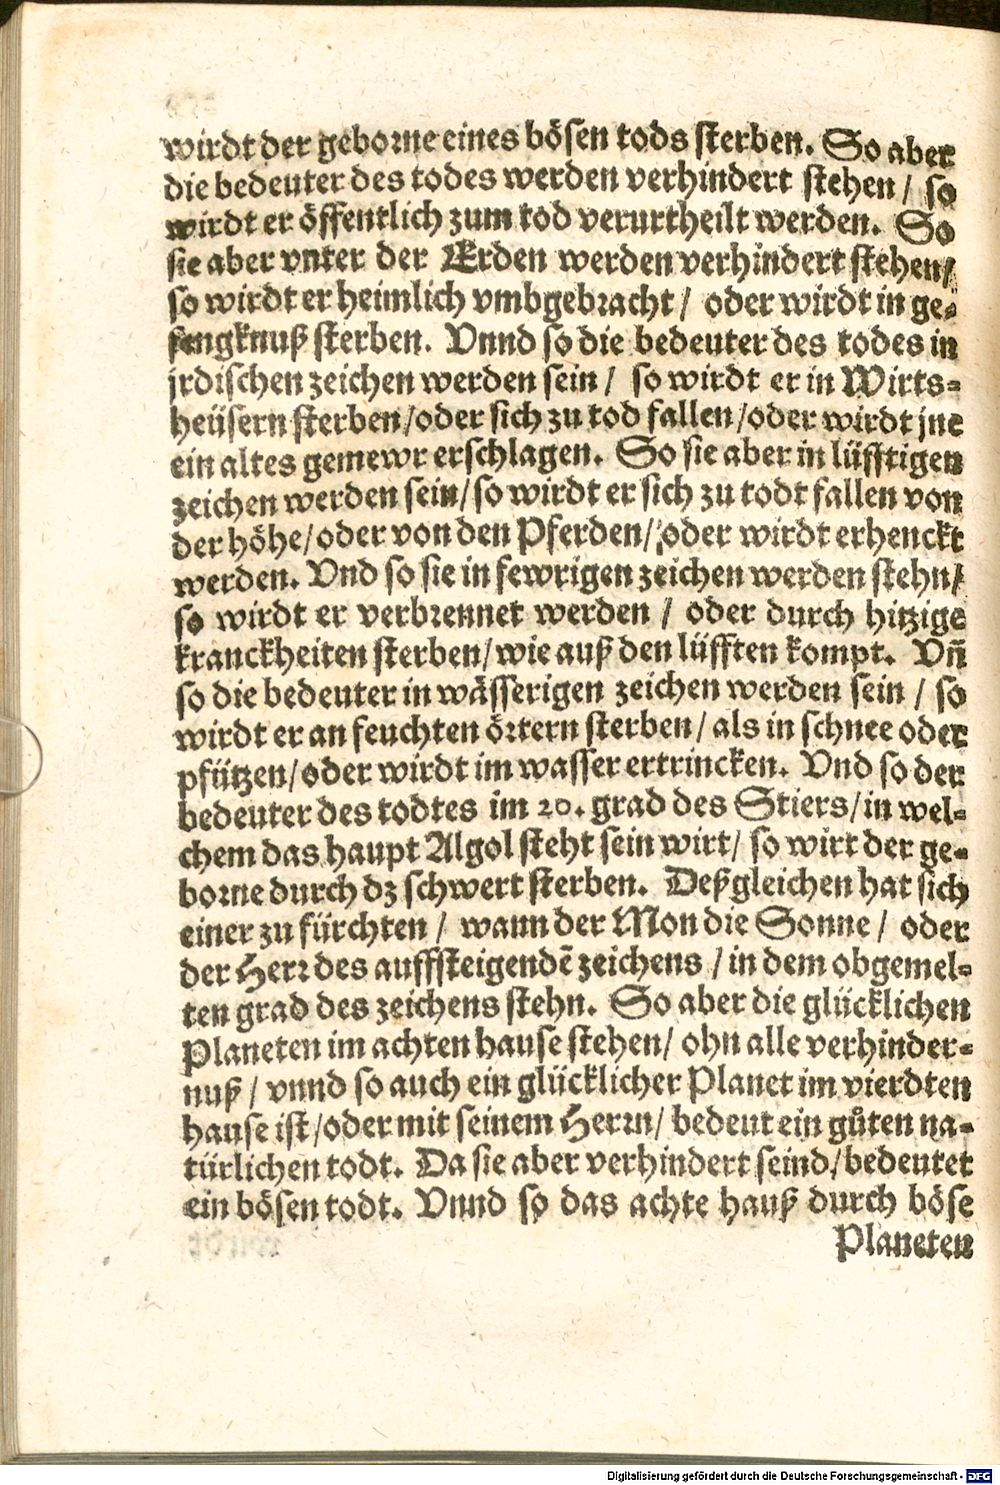 wirdt der geborne eines bösen tods sterben. So aber
die bedeuter des todes werden verhindert stehen / so
wirdt er öffentlich zum tod verurtheilt werden. So
sie aber vnter der Erden werden verhindert stehen/
so wirdt er heimlich vmbgebracht / oder wirdt in ge-
fengknuß sterben. Vnnd so die bedeuter des todes in
jrdischen zeichen werden sein / so wirdt er in Wirts-
heüsern sterben/oder sich zu tod fallen/oder wirdt jne
ein altes gemewr erschlagen. So sie aber in lüfftigen
zeichen werden sein/so wirdt er sich zu todt fallen von
der höhe/oder von den Pferden/oder wirdt erhenckt
werden. Vnd so sie in fewrigen zeichen werden stehn/
so wirdt er verbrennet werden / oder durch hitzige
kranckheiten sterben/wie auß den lüfften kompt. Vnñ
so die bedeuter in wässerigen zeichen werden sein / so
wirdt er an feuchten örtern sterben/als in schnee oder
pfützen/oder wirdt im wasser ertrincken. Vnd so der
bedeuter des todtes im 20. grad des Stiers/in wel-
chem das haupt Algol steht sein wirt/ so wirt der ge-
borne durch dz schwert sterben. Deßgleichen hat sich
einer zu fürchten / wann der Mon die Sonne / oder
der Herr des auffsteigendē zeichens /in dem obgemel-
ten grad des zeichens stehn. So aber die glücklichen
Planeten im achten hause stehen/ ohn alle verhinder-
nuß / vnnd so auch ein glücklicher Planet im vierdten
hause ist/oder mit seinem Herrn/ bedeut ein gůten na-
türlichen todt. Da sie aber verhindert seind/bedeutet
ein bösen todt. Vnnd so das achte hauß durch böse
Planeten
Digitalisierung gefördert durch die Deutsche Forschungsgemeinschaft - DFG